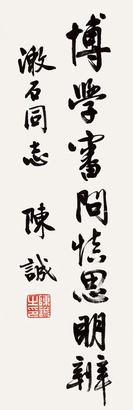 博學審問慎思明辨
澂石同志
陳誠